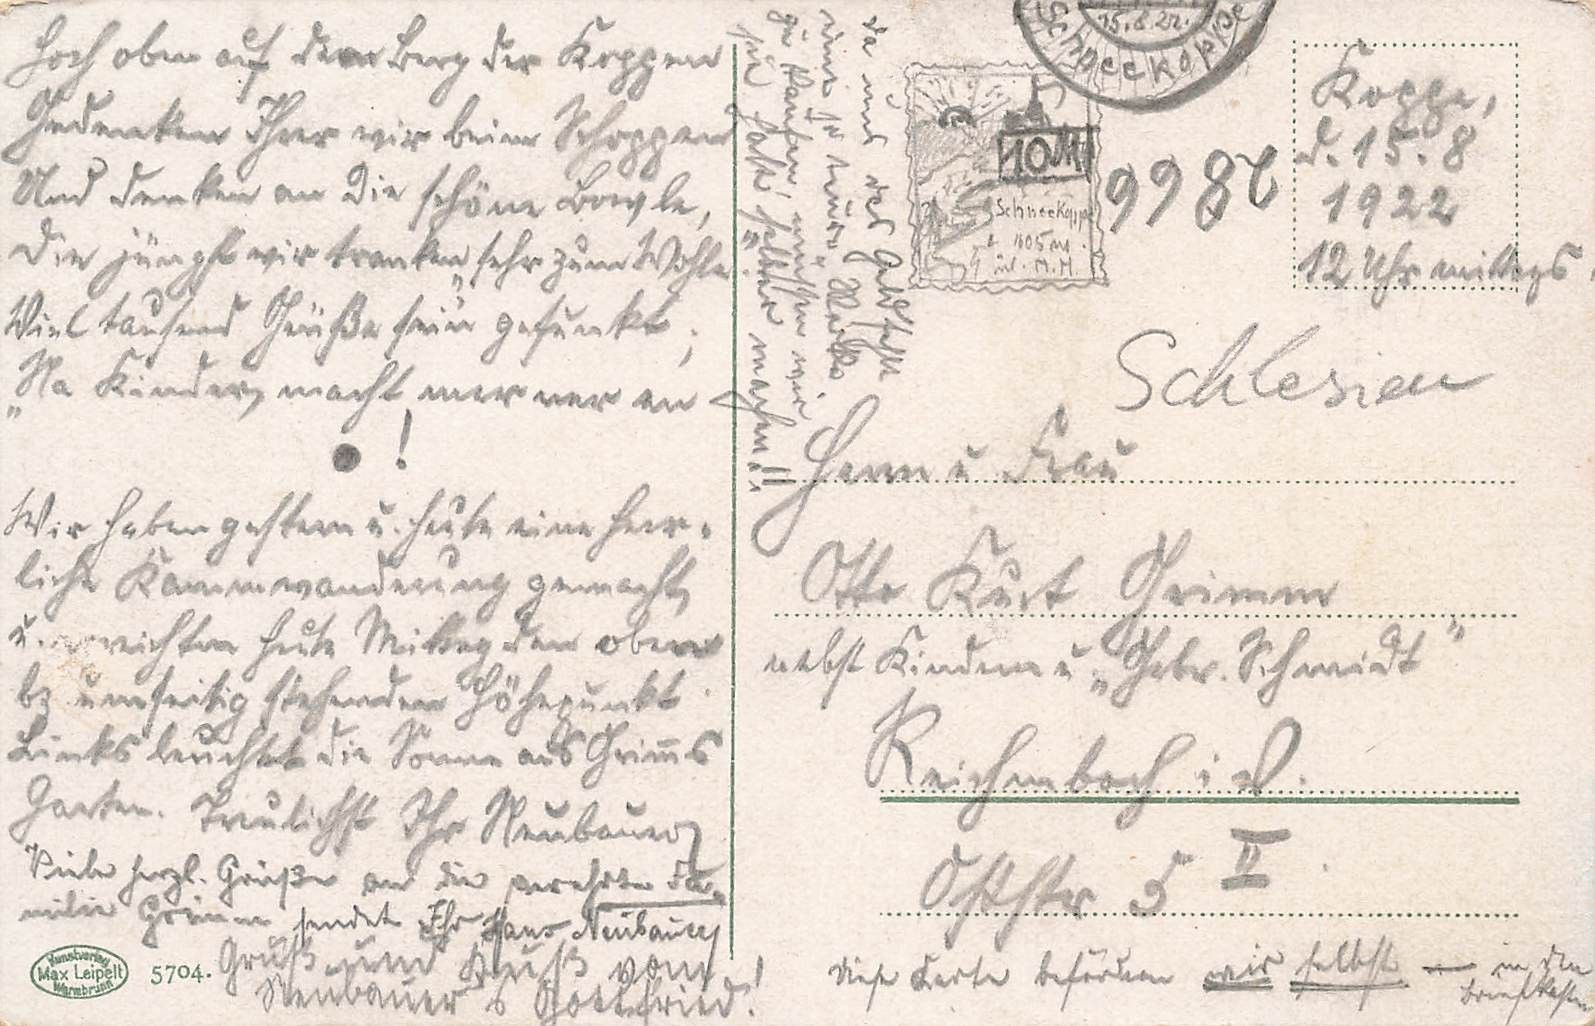 Hoch oben auf dem Berg der Koppen
Gedenken Ihrer wir beim Schoppen
Und denken an die schöne Bowle,
Die jüngst wir tranken sehr zum Wohle.
Viel tausend Grüße sein gefunkt;
"Na Kinder, macht mer ner en
● !
Wir haben gestern u. heute eine herr-
liche Kammwanderung gemacht
u. erreichten heute Mittag den oben
bz umseitig stehenden Höhepunkt.
Links leuchtet die Sonne aus Grimms
Garten. Treulichst Ihr Neubauer
Viele herzl. Grüße an die verehrte Fa-
milie Grimm sendet Ihr Hans Neubauer
Gruß und Kuß vom
Neubauer's Gottfried!
Kunstverlag
Max Leipelt
Warmbrunn
5704.
Da uns das Geld fehlt
eine so teure Marke
zu kaufen, mußten wir
sie halt selber machen!!
15.8.22.
Schneekoppe
10M
Schneekoppe
1605 m.
ü. M.M.
Koppe,
d. 15.8
1922
12 Uhr mittags
Schlesien
Herrn u Frau
Otto Kurt Grimm
nebst Kindern u „Gebr. Schmidt"
Reichenbach i V.
Oststr 5 II.
Diese Karte befördern wir selbst — in den
Briefkasten